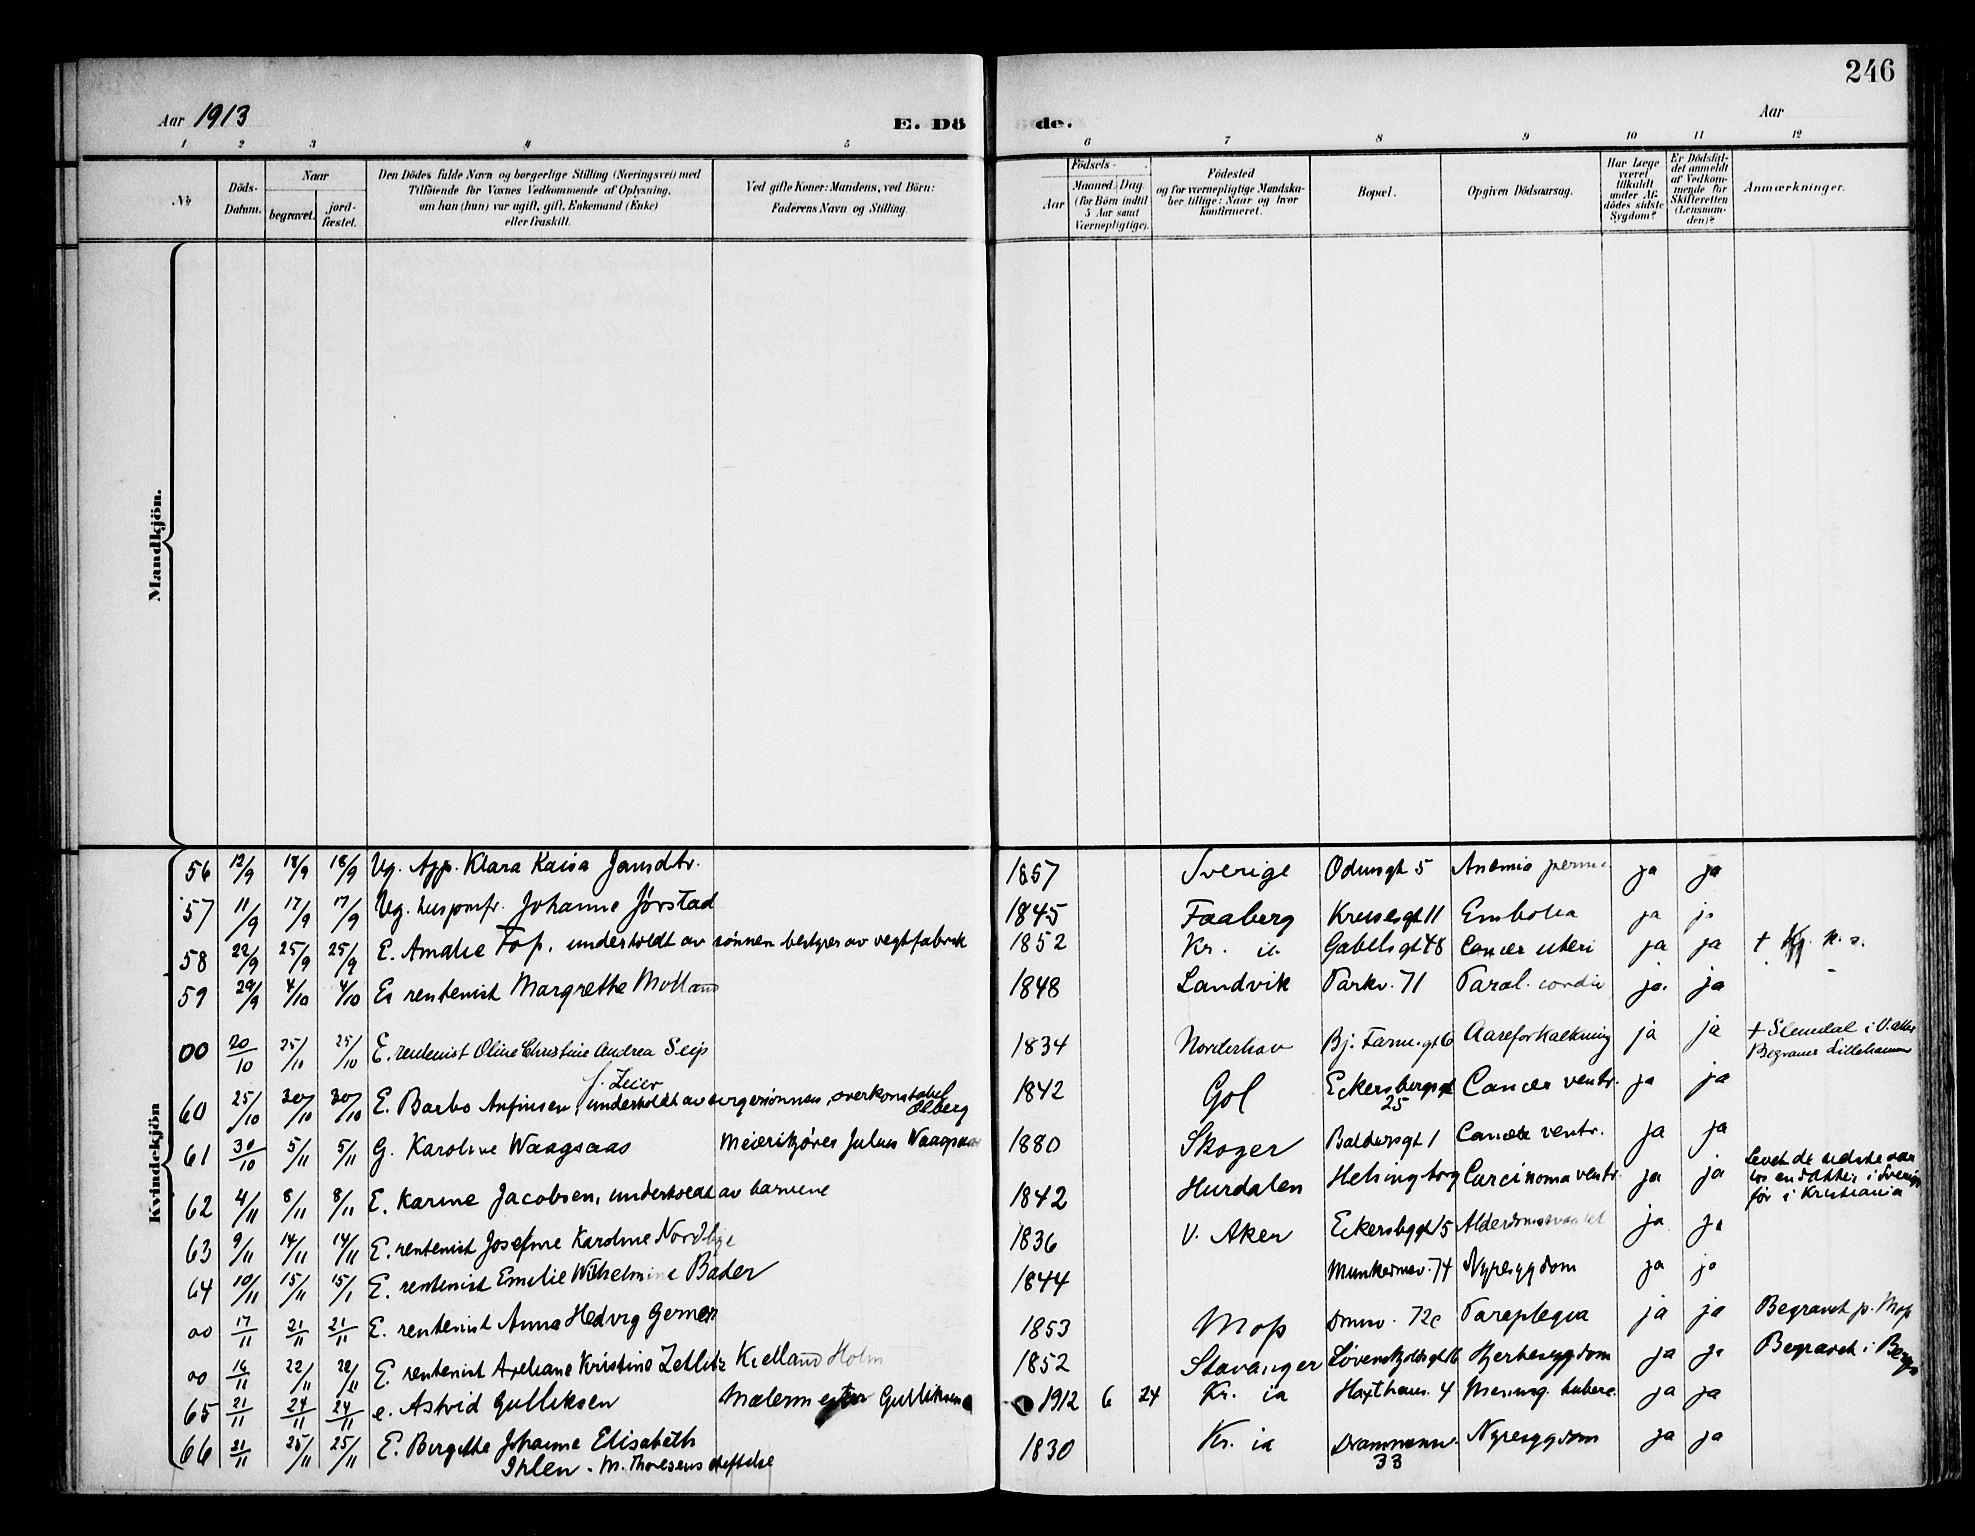 246
Aar 1913
E. Dö
de.
Aar
1 2 3 4 5 6 7 8 9 10 11 12
No
Döds-
Datum.
Naar
begravet.
jord-
fæstet.
Den Dödes fulde Navn og borgerlige Stilling (Næringsvei) med
Tilföiende for Voxnes Vedkommende af Oplysning,
om han (hun) var ugift, gift, Enkemand (Enke)
eller fraskilt.
Ved gifte Koner: Mandens, ved Börn:
Faderens Navn og Stilling.
Födsels-
Aar
Maaned. Dag.
(for Börn indtil
5 Aar samt
Værnepligtige).
Födested
og for værnepligtige Mandska-
ber tillige: Naar og hvor
konfirmeret.
Bopæl.
Opgiven Dödsaarsag.
Har Læge
været
tilkaldt
under Af-
dödes sidste
Sygdom?
Er Dödsfal-
det anmeldt
af Vedkom-
mende for
Skifteretten
(Lensman-
den)?
Anmærkninger.
Mandkjön.
Kvindekjön
56 12/9 18/9 18/9 Ug. Klara Kaisa Jansdtr. 1857 Sverige Odinsgt 5 Anemia ja ja
57 11/9 17/9 17/9 Ug. husjomfr. Johanne Jörstad 1845 Faaberg Krusesgt 11 Embolia ja ja
58 22/9 25/9 25/9 E. Amalie Foss, underholdt av sönnen bestyrer av vegtfabrik 1852 Kr. ia Gabelsgt 48 Cancer uteri ja ja
59 29/9 4/10 4/10 E. rentenist Margrethe Molland 1848 Landvik Parkv. 71 Paral. cordis ja ja
00 20/10 25/10 25/10 E. rentenist Oline Christine Andrea Seip 1834 Norderhov Bj. Farm.gt 6 Aareforkalkning ja ja + Slemdal i V. Aker
Begravet Lillehammer
f. Leier
60 25/10 30/10 30/10 E. Barbo Anfinsen, underholdt av svigersönnen, overkonstabel 1842 Gol Eckersbergsgt Cancer ventr. ja ja
Ølberg 25
61 30/10 5/11 5/11 G. Karoline Waagsaas Meierikjörer Julius Waagsaas 1880 Skoger Baldersgt 1 Cancer ventr. ja ja
62 4/11 8/11 8/11 E. Karine Jacobsen, underholdt av barnene 1842 Hurdalen Helsingborg Carcinoma ventr. ja ja Levet de sidste aar
hos en datter i Sverige
før i Kristiania
63 9/11 14/11 14/11 E. rentenist Josefine Karoline Nordbye 1836 V. Aker Eckersbggt 15 Alderdomssvakhet ja ja
64 10/11 15/11 15/1 E. rentenist Emilie Wilhelmine Bader 1844 Munkedamsv. 74 Nyresygdom ja ja
00 17/11 21/11 21/11 E. rentenist Anna Hedvig Gerner 1853 Moss Drmv. 72c Paraplegia ja ja Begravet p. Moss
00 16/11 22/11 22/11 E. rentenist Axeliane Kristine Zetlitz Kielland Holm 1852 Stavanger Løvenskjoldsgt 16 Hjertesygdom ja ja Begravet i Bergen
65 21/11 24/11 24/11 e. Astrid Gulliksen Malermester Gulliksen 1912 6 24 Kr. ia Haxthaus. 4 Mening. tuberc. ja ja
66 21/11 25/11 25/11 E. Birgithe Johanne Elisabeth 1830 Kr. ia Drammensv. Nyresygdom ja ja
Ihlen. M. Thoresens stiftelse 33